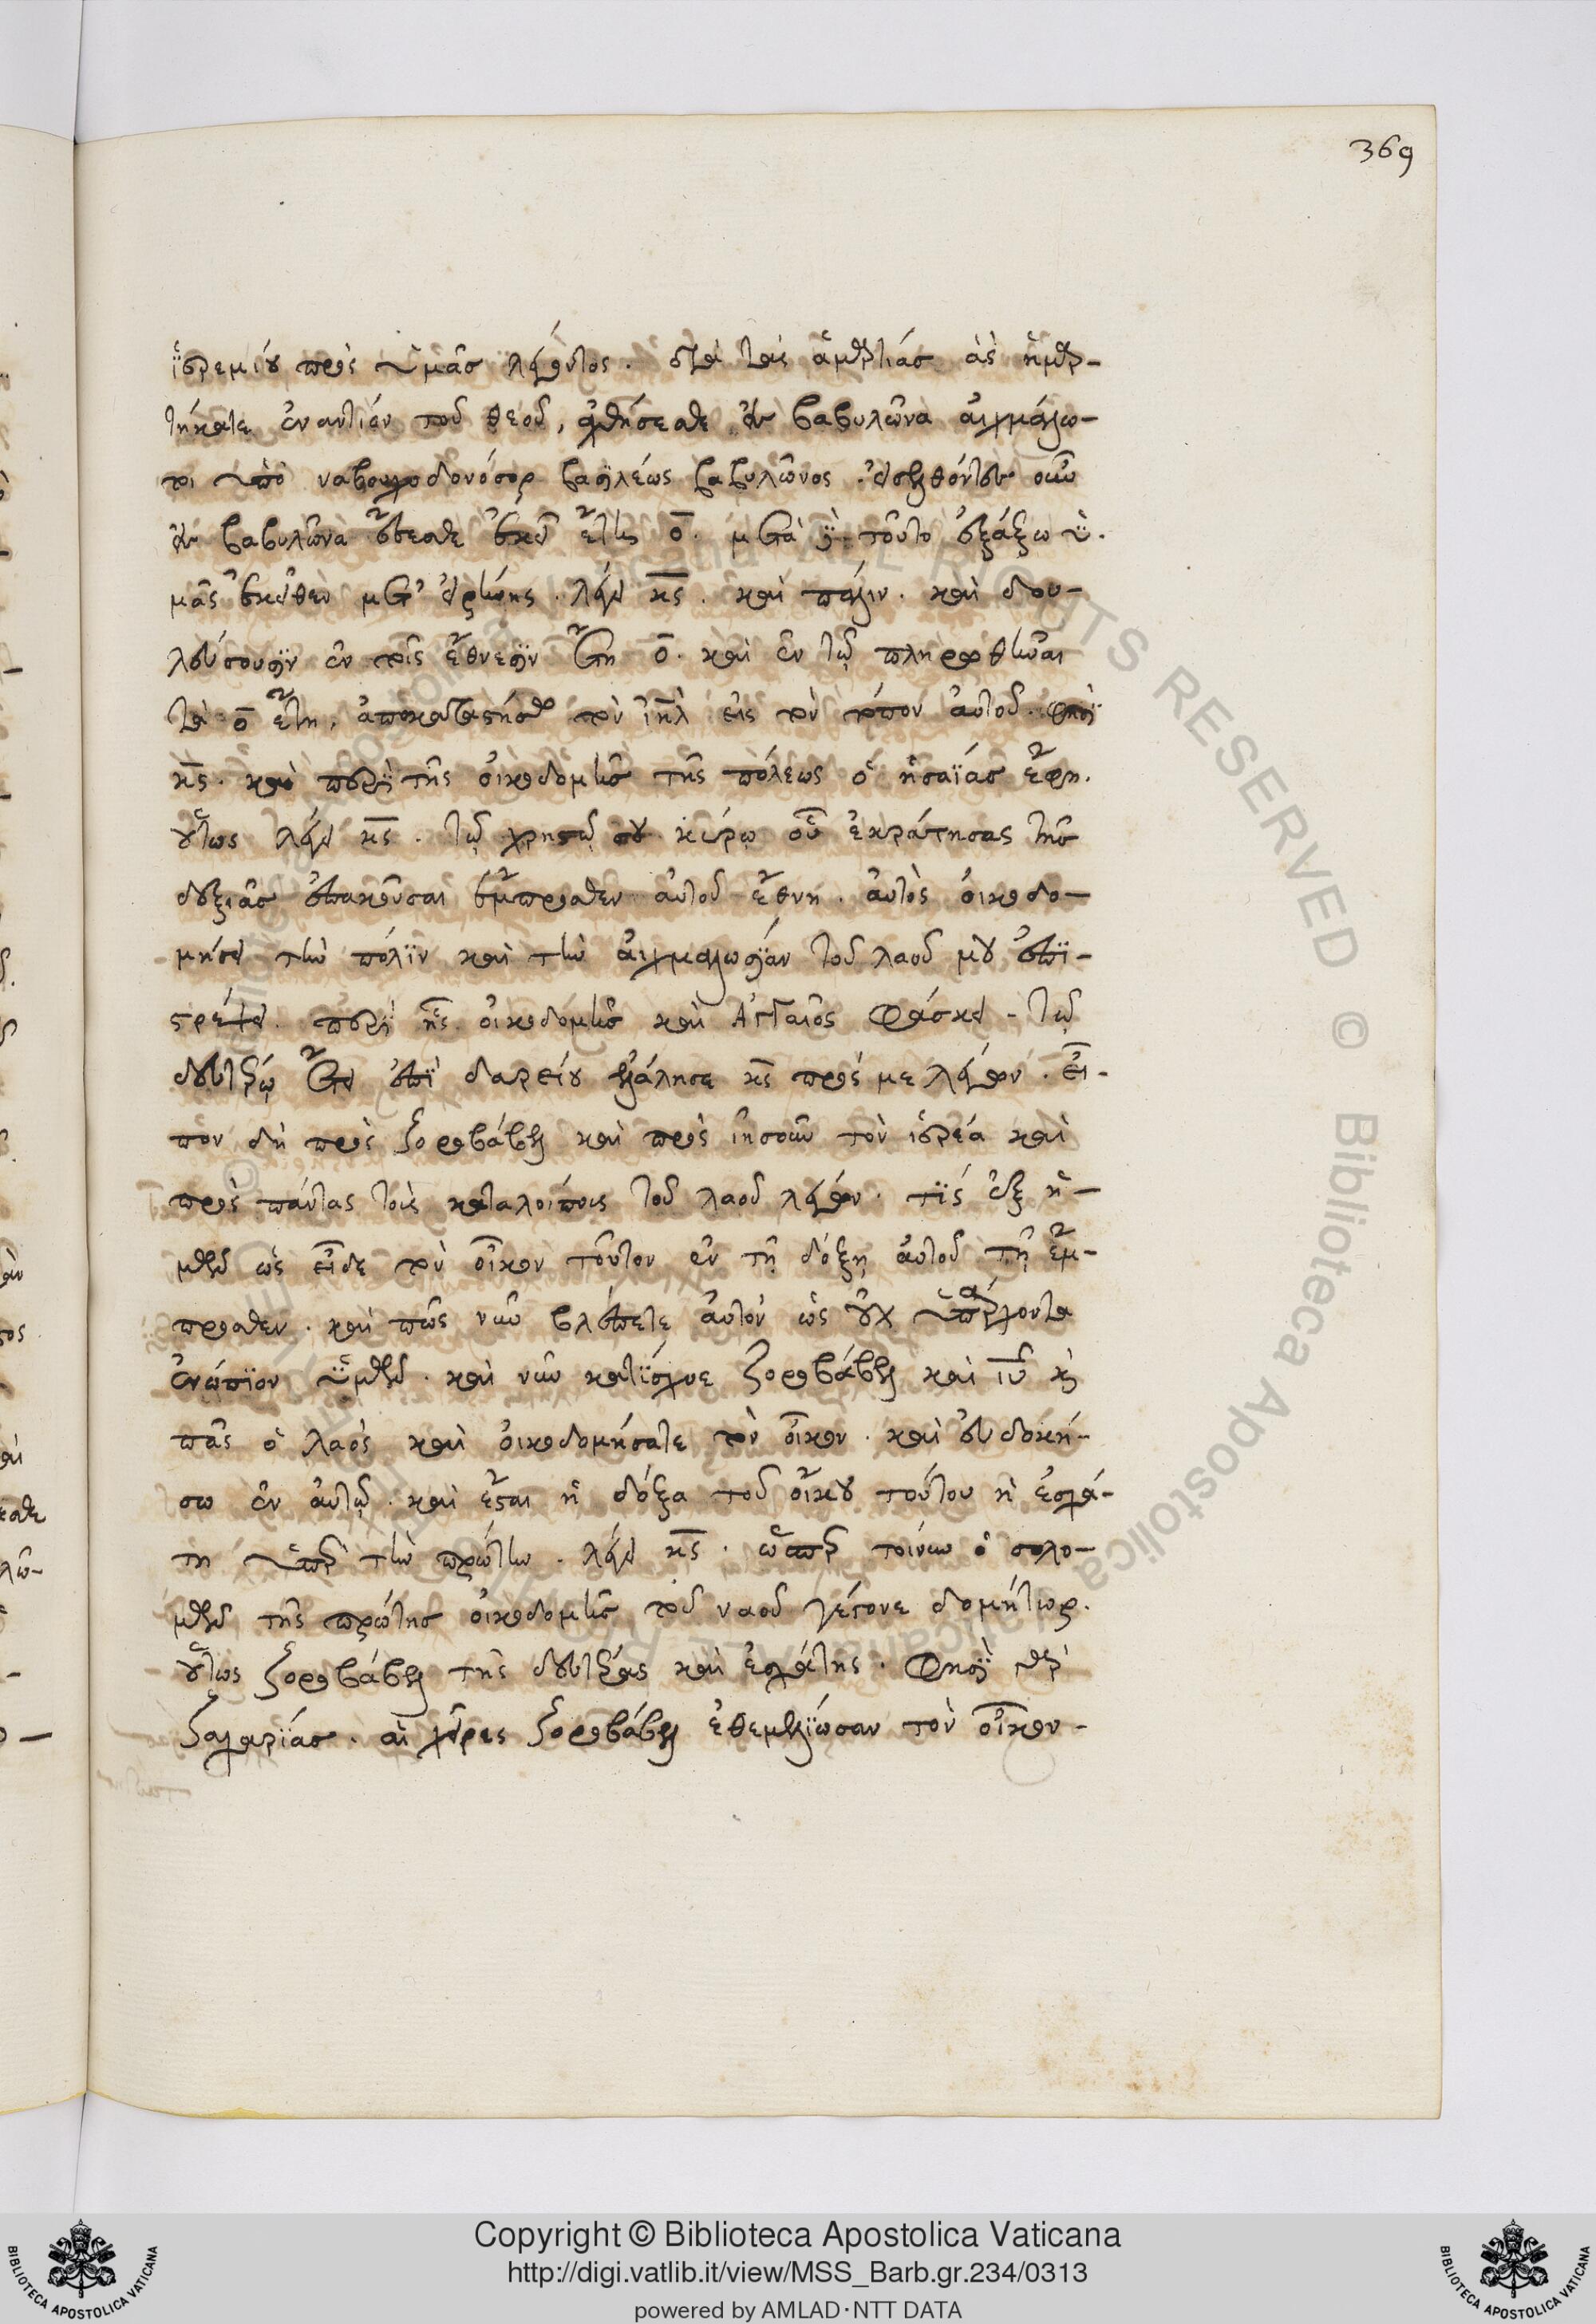 369
ἱερεμίου πρὸς ὑμᾶς λέγοντος. διὰ τὰς ἁμαρτίας ἃς ἡμαρ-
τήκατε ἐναντίον τοῦ θεοῦ, ἀχθήσεσθε εἰς βαβυλῶνα αἰχμάλω-
τοι ὑπὸ ναβουχοδονόσορ βασιλέως βαβυλῶνος. εἰσελθόντες οὖν
εἰς βαβυλῶνα ἔσεσθε ἐκεῖ ἔτη ο̅. μετὰ δὲ τοῦτο ἐξάξω ὑ-
μᾶς ἐκεῖθεν μετ' εἰρήνης. λέγει κς̅. καὶ πάλιν. καὶ δου-
λεύσουσιν ἐν τοῖς ἔθνεσιν ἔτη ο̅. καὶ ἐν τῷ πληρωθῆναι
τὰ ο̅ ἔτη, ἀποκαταστήσω τὸν ιηλ̅ εἰς τὸν τόπον αὐτοῦ. φησὶ
κς̅. καὶ περὶ τῆς οἰκοδομῆς τῆς πόλεως ὁ ἡσαΐας ἔφη.
οὕτως λέγει κς̅. τῷ χρηστῷ μου κύρῳ οὗ ἐκράτησας τῆς
δεξιᾶς ἐπακοῦσαι ἔμπροσθεν αὐτοῦ ἔθνη. αὐτὸς οἰκοδο-
μήσει τὴν πόλιν καὶ τὴν αἰχμαλωσίαν τοῦ λαοῦ μου ἐπι-
στρέψει. περὶ ἧς οἰκοδομῆς καὶ ἀγγαῖος φάσκει. τῷ
δευτέρῳ ἔτει ἐπὶ δαρείου ἐλάλησε κς̅ πρός με λέγων. εἰ-
πὸν δὴ πρὸς ζοροβάβελ καὶ πρὸς ἰησοῦν τὸν ἱερέα καὶ
πρὸς πάντας τοὺς καταλοίπους τοῦ λαοῦ λέγων. τίς ἐξ ἡ-
μῶν ὡς εἶδε τὸν οἶκον τοῦτον ἐν τῇ δόξῃ αὐτοῦ τῇ ἔμ-
προσθεν. καὶ πῶς νῦν βλέπετε αὐτὸν ὡς οὐχ ὑπάρχοντα
ἐνώπιον ὑμῶν. καὶ νῦν κατίσχυε ζοροβάβελ καὶ ιυ̅ καὶ
πᾶς ὁ λαὸς καὶ οἰκοδομήσατε τὸν οἶκον. καὶ εὐδοκή-
σω ἐν αὐτῷ. καὶ ἔσται ἡ δόξα τοῦ οἴκου τούτου ἡ ἐσχά-
τη ὑπὲρ τὴν πρώτην. λέγει κς̅. ὥσπερ τοίνυν ὁ σολο-
μῶν τῆς πρώτης οἰκοδομῆς τοῦ ναοῦ γέγονε δομήτωρ.
οὕτως ζοροβάβελ τῆς δευτέρας καὶ ἐσχάτης. φησὶ γὰρ
ζαχαρίας. αἱ χεῖρες ζοροβάβελ ἐθεμελίωσαν τὸν οἶκον
BIBLIOTECA APOSTOLICA VATICANA
Copyright © Biblioteca Apostolica Vaticana
http://digi.vatlib.it/view/MSS_Barb.gr.234/0313
powered by AMLAD·NTT DATA
BIBLIOTECA APOSTOLICA VATICANA